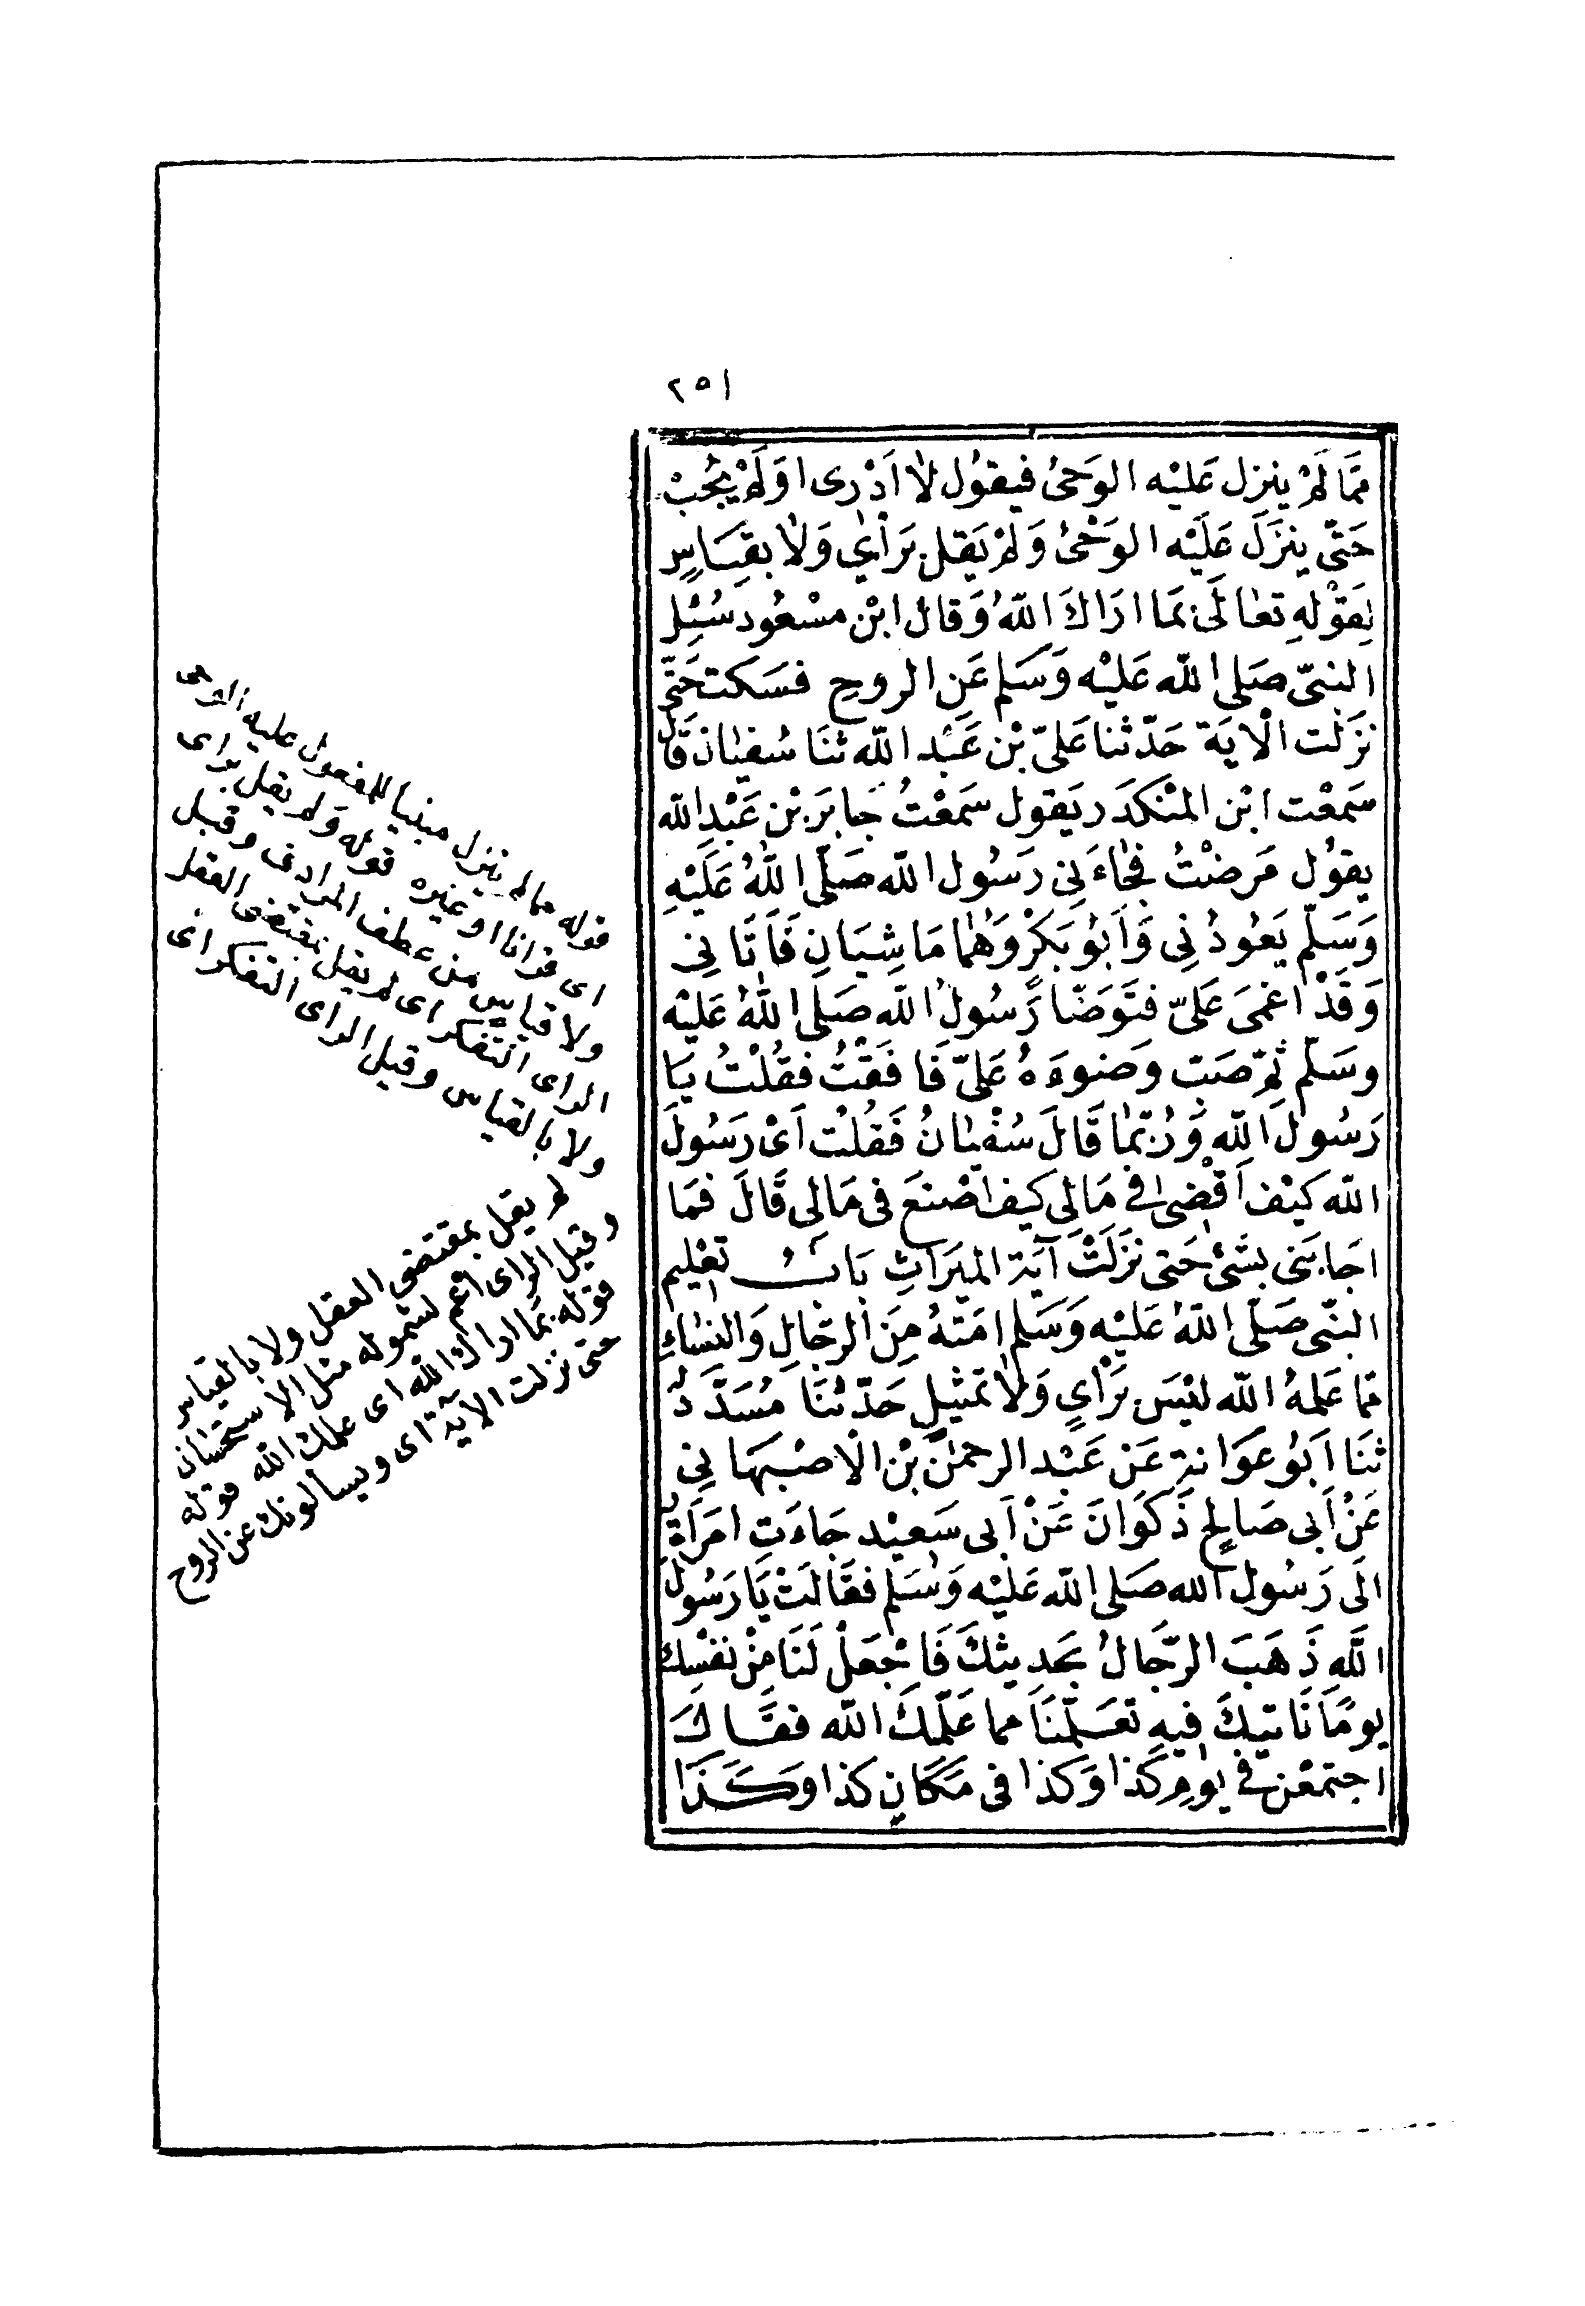 ٢٥١
مِمَّا لَمْ ينزل عَلَيْه الوَحْىُ فيقوُل لٰا اَدْرى اوَلَمْ يُجِبْ
حَتّى ينزَلَ عَلَيْه الوَحْىُ وَلَمْ يَقل بَرَأيٍ وَلاٰ بقِيَاسٍ
لِقَوْلهِ تعٰالَى بمَا ارَاكَ اللّهُ وَقال ابْن مسْعُود سُئِل
النبىّ صَلى اللّه عَليْه وَسَلم عَنِ الروحِ فسَكت حَتّى
نزَلت الْايَة حَدّثنا عَلىّ بْن عَبْد اللّه ثنَا سُفيٰان قَال
سَمعْت ابْن المنْكدَر يَقول سَمعْتُ جَابَر بْن عَبْدِ اللّه
يقوُل مَرضْتُ فجٰاءَنِى رَسُول اللّه صَلّى اللّٰهُ عَلَيْهِ
وَسَلّم يَعُودُنِى وَاَبُو بَكرْ وَهُمٰا مَاشِيَانِ فَاَتَانِى
وَقَدْ اغمىَ عَلىّ فتَوَضّا رَسُولُ اللّه صَلى اللّٰهُ عَليْه
وسَلّم ثمّ صَبّ وَضوءَهُ عَلىّ فَافَقْتُ فقُلْتُ يَا
رَسُولَ اللّهِ وَرُبّمٰا قَالَ سُفْيٰانُ فَقُلْت اَىْ رَسُولَ
اللّه كيْف اَقْضى فى مَالِى كيف اصْنعَ فى مَالِى قَالَ فمَا
اجَابَنى بشَىْ حَتى نزَلَتْ آيَة الميرَاثِ بَابُ تعْليم
النبّى صَلّى اللّهُ عَليْه وَسَلم امّتهُ مِنَ الرجٰالِ وَالنسٰاءِ
مما عَلمهُ اللّه ليْسَ بَرَأيٍ وَلاٰ تمثيلٍ حَدّثنَا مُسَدَّدُ
ثنَا اَبُو عوَانة عَن عَبْد الرحمٰن بْن الْاصْبهَانِى
عَنْ اَبى صَالحٍ ذَكوَانَ عَنْ اَبى سَعيْد جَاءَتِ امرَأة
الَى رَسُول اللّه صَلى اللّه عَليْه وَسَلم فقَالَتْ يَا رَسُول
اللّهِ ذَهَبَ الرّجَالُ بحَديثكَ فَاجْعَلْ لَنَا مِنْ نفْسِك
يومًا نَاتيكَ فيهِ تعَلّمنَا مما عَلّمكَ اللّه فقَال
اجتمعْن فى يوٰم كَذا وَكذا فى مَكَانِ كذا وَكَذَا
قوله مما لم ينزل مبنيا للمفعول عليه الوحى
اى قرانا او غيره قوله ولم يقل براى
ولا قياس من عطف المرادف وقيل
الراى التفكر اى لم يقل بمقتضى العقل
ولا بالقياس وقيل الراى التفكر اى
لم يقل بمقتضى العقل ولا بالقياس
وقيل الراى اعم لشموله مثل الاستحسان
قوله بما اراك اللّه اى علمك اللّه قوله
حتى نزلت الآية اى ويسألونك عن الروح